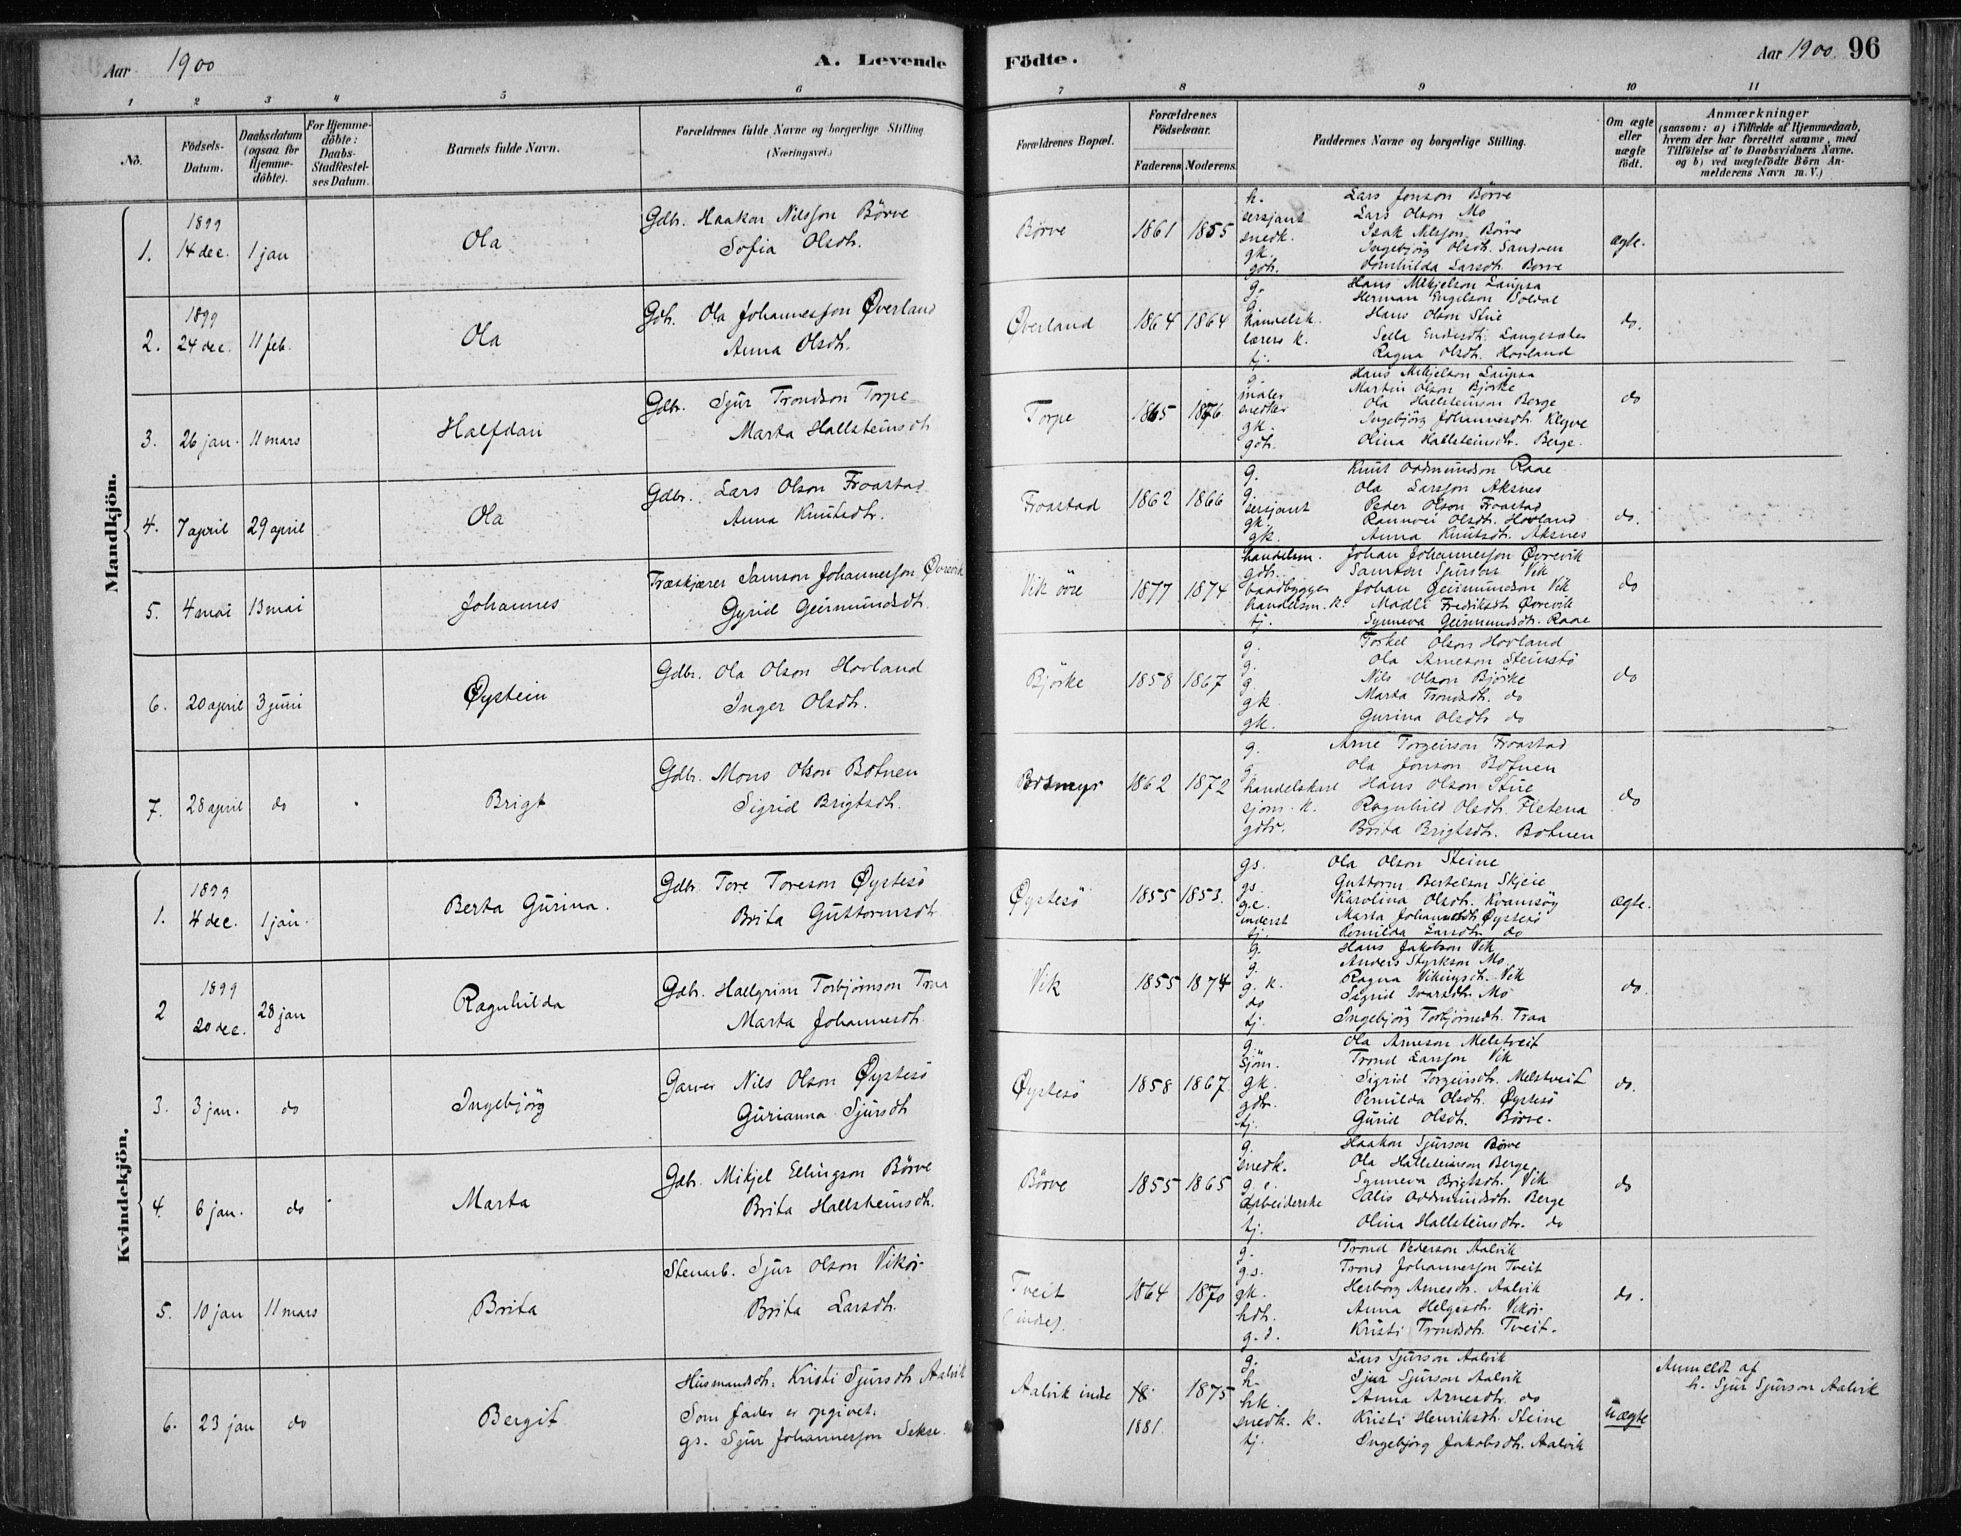 Aar 1900
A. Levende
Födte.
Aar 1900. 96
1 2 3 4 5 6 7 8 9 10 11
No.
Födsels-Datum.
Daabsdatum (ogsaa for Hjemme-döbte).
For Hjemme-döbte: Daabs-Stadfæstel-ses Datum.
Barnets fulde Navn.
Forældrenes fulde Navne og borgerlige Stilling (Næringsvei.)
Forældrenes Bopæl.
Forældrenes Födselsaar.
Faderens. Moderens.
Faddernes Navne og borgerlige Stilling.
Om ægte eller uægte födt.
Anmærkninger
(saasom: a) i Tilfælde af Hjemmedaab, hvem der har forrettet samme, med Tilföielse af to Daabsvidners Navne. og b) ved uægtefödte Börn An-melderens Navn m. V.)
Mandkjön.
1. 1899 14 dec. 1 jan Ola
Gdbr. Haakon Nilsson Börve
Sofia Olsdtr.
Börve 1861 1855
h. Lars Jonson Börve
sersjant Lars Olson Mo
snedk. Isak Nilsson Börve
gk. Ingebjörg Olsdtr. Sandven
gdtr. Larsdtr. Börve
ægte.
2. 1899 24 dec. 11 feb. Ola
Gdbr. Ola Johannesson Øverland
Anna Olsdtr.
Øverland 1864 1864
g. Hans Mikjelson Laupsa
g. Herman Engelson Soldal
handelsk. Hans Olson Stue
lærers k. Sella Endesdtr. Langesæter
tj. Ragna Olsdtr. Hovland
do.
3. 26 jan. 11 mars Halfdan
Gdbr. Sjur Trondson Torpe
Marta Hallsteinsdtr
Torpe 1865 1876.
g. Hans Mikjelson Laupsa
maler Martin Olson Bjørke
snedker Ola Hallsteinson Berge
gk. Ingebjörg Johannesdtr. Klyve
gdtr. Olina Hallsteinsdtr. Berge
do
4. 7 april 29 april Ola
Gdbr. Lars Olson Froastad
Anna Knutsdtr.
Froastad 1862 1866
g. Knut Oddmundson Raae
g. Ola Larsson Aksnes
sersjant Peder Olson Froastad
gk. Rannvei Olsdtr. Hovland
gk. Anna Knutsdtr. Aksnes
do.
5. 4 mai 13 mai Johannes
Træskjærer Samson Johannesson Øvrevik
Gyrid Geirmundsdtr.
Vik övre 1877 1874
handelsm. Johan Johannesson Øvrevik
gdbr. Samson Sjurson Vik
baadbygger Johan Geirmundson Vik
handelsm. k. Madli Fredriksdtr. Øvrevik
tj. Synneva Geirmundsdtr. Raae
do
6. 20 april 3 juni Øystein
Gdbr. Ola Olson Hovland
Inger Olsdtr.
Björke 1858 1867
g. Torkel Olson Hovland
g. Ola Arneson Steinstö
g Nils Olson Björke
gk Marta Trondsdtr. do
gk. Gurina Olsdtr do
do
7. 28 april do Brigt
Gdbr. Mons Olson Botnen
Sigrid Brigtsdtr.
1862 1872
g. Arne Torgeirson Froastad
g Ola Jonson Botnen
handelskarl Hans Olson Stue
sjöm. k. Ragnhild Olsdtr. Fletena
gdtr. Brita Brigtsdtr. Botnen
do
Kvindekjön.
1. 1899 4 dec. 1 jan. Berta Gurina.
Gdbr. Tore Toreson Øystesö
Brita Guttormsdtr
Øystesö 1855 1853.
gs. Ola Olson Steine
gs. Guttorm Bertelson Skjeie
g.e. Karolina Olsdtr. Kvamsöy
inderst Marta Johannesdtr. Øystesö
tj. Larsdtr. do
ægte.
2 1899 20 dec. 28 jan Ragnhilda
Gdbr. Hallgrim Torbjörnson Traa
Marta Johannesdtr.
Vik 1855 1874
g. Hans Jakobson Vik
g. Anders Styrkson Mo
g. k. Ragna Vikingsdtr. Vik
do Sigrid Ivarsdtr. Mo
tj. Ingebjörg Torbjörnsdtr. Traa
do.
3. 3 jan. do Ingebjörg
Garver Nils Olson Øystesö
Gurianna Sjursdtr
Øystesö 1858 1867.
g. Ola Arneson Melstveit
sjöm. Trond Larsson Vik
gk. Sigrid Torgeirsdtr. Melstveit
gdtr. Pernilda Olsdtr. Øystesö
tj. Gurid Olsdtr. Börve.
do.
4. 6 jan. do Marta
Gdbr. Mikjel Ellingson Börve
Brita Hallsteinsdtr.
Börve 1855 1865
g. Haakon Sjurson Börve
snedk. Ola Hallsteinson Berge
g. e. Synneva Brigtsdtr. Vik
arbeiderske Alis Oddmundsdtr. Berge
tj. Olina Hallsteinsdtr. do
do
5. 10 jan 11 mars Brita
Stenarb. Sjur Olson Vikör
Brita Larsdtr.
Tveit (indre). 1864 1870
g. Trond Pederson Aalvik
g.s. Trond Johannesson Tveit
gk. Herborg Arnesdtr. Aalvik
hdtr. Anna Helgesdtr. Vikör
g.d. Kristi Trondsdtr. Tveit.
do.
6. 23 jan do Bergit
Husmandsdtr. Kristi Sjursdtr Aalvik
Som fader er opgivet:
gs. Sjur Johannesson Sekse.
Aalvik indre 1881. 1875
g. Lars Sjurson Aalvik
h. Sjur Sjurson Aalvik
hk. Anna Arnesdtr. do
snedk. k. Kristi Henriksdtr. Steine
tj. Ingebjörg Jakobsdtr. Aalvik
Uægte
Anmeldt af
h. Sjur Sjurson Aalvik